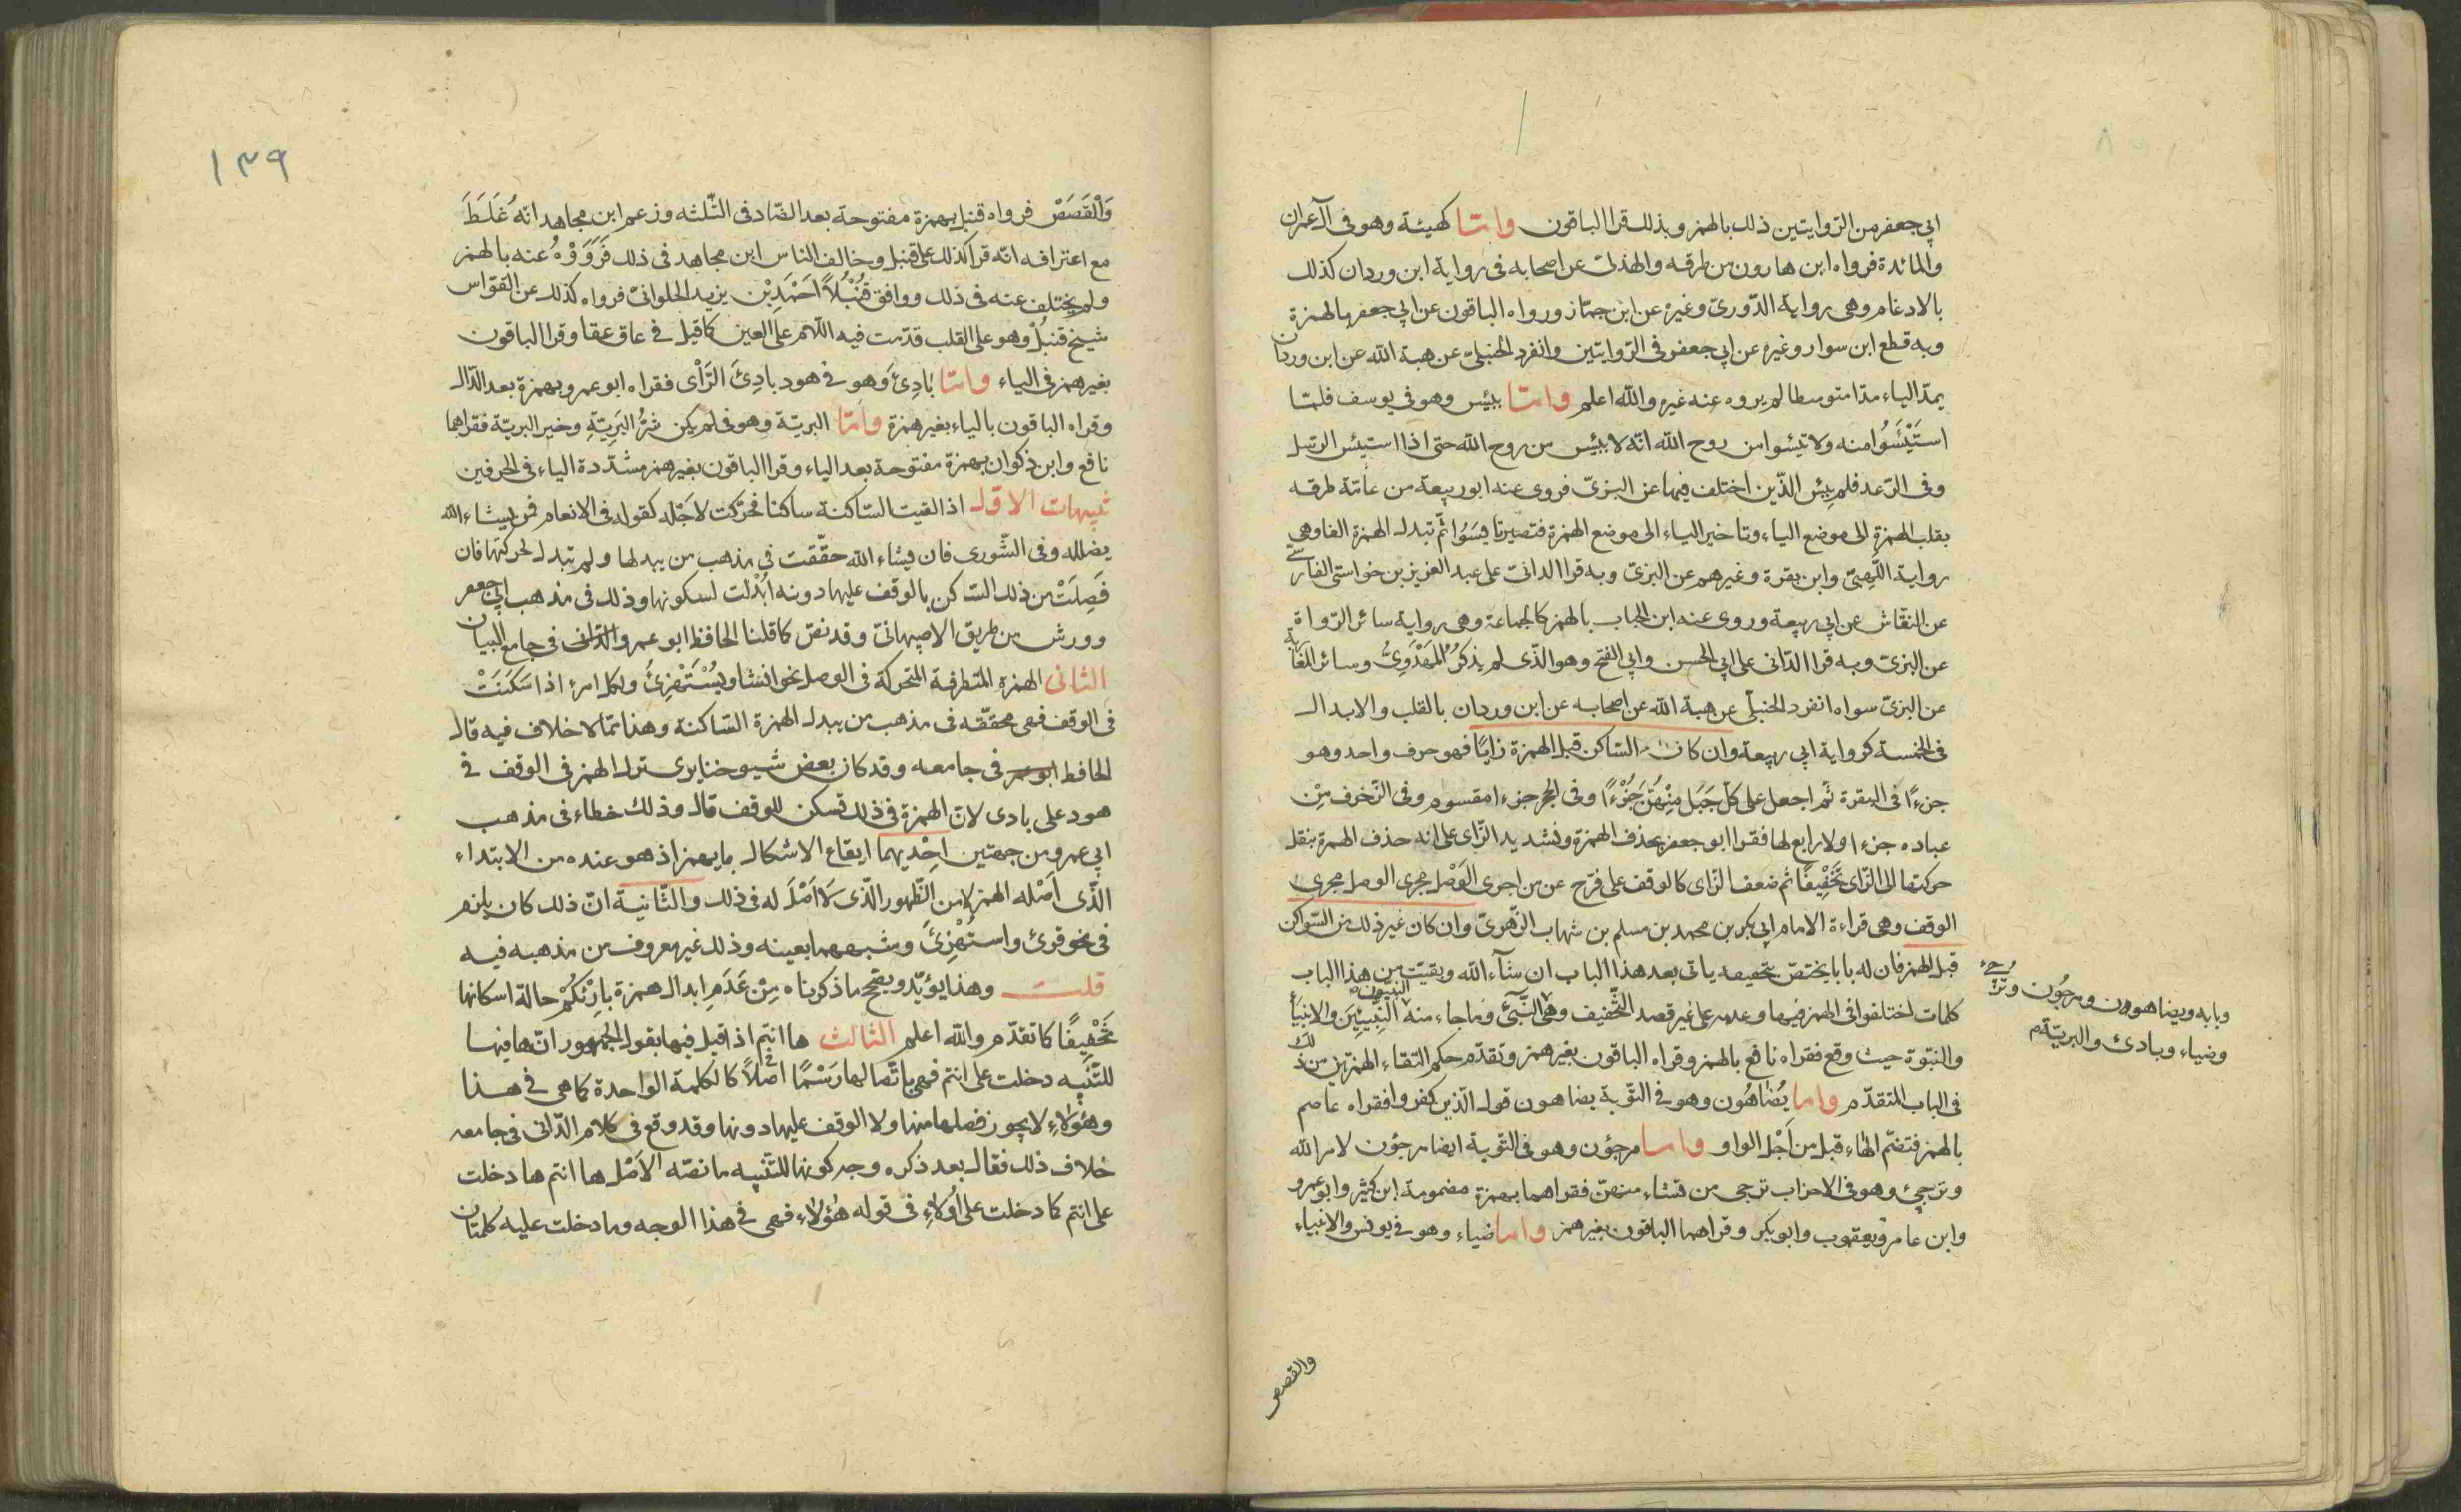 ابي جعفر من الروايتين ذلك بالهمز وبذلك قرا الباقون وامّا كهيئة وهو في آل عمران
والمائدة فرواه ابن هارون من طرقه والهذلى عن اصحابه فى رواية ابن وردان كذلك
بالادغام وهى رواية الدّورىّ وغيره عن ابن جمّاز ورواه الباقون عن ابي جعفر بالهمزة
وبه قطع ابن سوار وغيره عن ابي جعفر فى الرّوايتين وانفرد الحنبلىّ عن هبة الله عن ابن وردان
بمدّ الياء مدّا متوسطا لم يروه عنه غيره والله اعلم وامّا يـيئس وهو في يوسف فلمّا
استَيْئَسُوا منه ولا تيئسوا من روح الله انّه لا ييئس من روح الله حتى اذا استيئس الرّسل
وفى الرّعد فلم ييئس الّذين اختلف فيها عن البزىّ فروى عنه ابو ربيعة من عامّة طرقه
بقلب الهمزة الى موضع الياء وتاخير الياء الى موضع الهمزة فتصير تا يسَوُا ثمّ تبدل الهمزة الفا وهى
رواية اللّهبىّ وابن بقرة وغيرهم عن البزىّ وبه قرا الدانىّ على عبد العزيز بن خواستى الفارسىّ
عن النقّاش عن ابي ربيعة وروى عنه ابن الحباب بالهمز كالجماعة وهى رواية سائر الرّواة
عن البزىّ وبه قرا الدّانى على ابي الحسن وابي الفتح وهو الّذى لم يذكرُ المَهْدَوِىُّ وسائر المغاربة
عن البزىّ سواه انفرد الحنبلّى عن هبة الله عن اصحابه عن ابن وردان بالقلب والابدال
فى الخمسة كرواية ابي ربيعة وان كان السّاكن قبل الهمزة زايًا فهو حرف واحد وهو
جزءًا فى البقرة ثم اجعل على كلّ جَبَل مِنْهُنَّ جُزْءًا وفى الحجر جزء مقسوم وفى الزّخرف مِنْ
عباده جزءا ولا رابع لها فقرا ابو جعفر بحذف الهمزة وتشديد الزّاى على انه حذف الهمزة بنقل
حركتها الى الزّاى تَخْفِيفًا ثم ضعف الزّاى كالوقف على فرّح عن من اجرى الوَصْل مجرى الوصل مجرى
الوقف وهى قراءة الامام ابي بكر بن محمد بن مسلم بن شهاب الزّهرىّ وان كان غير ذلك من السّواكن
قبل الهمز فان له بابا يختصّ بتخفيفه ياتى بعد هذا الباب ان شآء الله وبقيت من هذا الباب
كلمات اختلفوا فى الهمز فيها وعدمه على غير قصد التَّخفيف وهى النَّبىّ وما جاء منه النّبيّون النَّبِيّيِنَ والانبياء
والنبّوة حيث وقع فقراه نافع بالهمز وقراه الباقون بغير همز وتقدّم حكم التقاء الهمزتين من ذلك
فى الباب المتقدّم وامّا يُضَاهُون وهو فى التّوبة يضاهون قول الّذين كفروا فقراه عاصم
بالهمز فتضمّ الهاء قبل من أجْل الواو وامّا مرجؤن وهو فى التّوبة ايضا مرجؤن لامر الله
وترجئ وهو فى الاحزاب ترجى من تشاء منهنّ فقراهما بهمزة مضمومة ابن كثير وابو عمرو
وابن عامر ويعقوب وابو بكر وقراهما الباقون بغير همز وامّا ضياء وهو فى يونس والانبياء
وبابه ويضاهوون ومرجون وترجئ
وضياء وبادئ والبريّة م
والقصص
١٣٩
وَالْقَصَصْ فرواه قنبل بهمزة مفتوحة بعد الضّاد فى الثّلثه وزعم ابن مجاهد انّه غَلَطَ
مع اعترافه انّه قرا كذلك على قنبل وخالف الناس ابن مجاهد فى ذلك فَرَوَوْهُ عنه بالهمز
ولم يختلف عنه فى ذلك ووافق قُنْبُلاً اَحْمَدِ بْن يزيد الحلوانىّ فرواه كذلك عن القوّاس
شيخ قنبلْ وهو على القلب قدّمت فيه اللّام على العين كما قيل فى عاق عقا وقرا الباقون
بغير همز فى الياء وامّا بَادِئَ وهو فى هود بادِئَ الرَّأى فقراه ابو عمرو بهمزة بعد الدّال
وقراه الباقون بالياء بغير همزة وامّا البريّة وهو فى لم يكن شَرُّ البَرِيّةِ وخير البريّة فقراهما
نافع وابن ذكوان بهمزة مفتوحة بعد الياء وقرا الباقون بغير همز مشدّدة الياء فى الحرفين
تنبيهات الاوّل اذا لقيت السّاكنة ساكنا فحرّكت لاجله كقوله فى الانعام من يشاء الله
يضلله وفى الشّورى فان يشاء الله حقّقت فى مذهب من يبدلها ولم تبدل لحركتها فان
فَصِلَتْ من ذلك السّاكن بالوقف عليها دونه ابْدلت لسكونها وذلك فى مذهب ابي جعفر
وورش من طريق الاصبهانىّ وقد نصّ كما قلنا الحافظ ابو عمرو الدّانى فى جامع البيان
الثانى الهمزة المتطرفة المتحركة فى الوصل نحو انشا ويُسْتَهْزِئَُ ولكل امرئ اذا سَكَنَتْ
فى الوقف فهى محقّقه فى مذهب من يبدل الهمزة السّاكنة وهذا ممّا لا خلاف فيه قال
الحافظ ابو عمر فى جامعه وقد كان بعض شيوخنا يرى ترك الهمز فى الوقف فى
هود على بادى لانّ الهمزة فى ذلك تسكن للوقف قال وذلك خطاء فى مذهب
ابي عمرو من جهتين احْديهما ايقاع الاشكال بما يهمز اذ هو عنده من الابتداء
الّذى اَصْله الهمز لا من الظّهور الّذى لَا اَصْلَ له فى ذلك والثّانية انّ ذلك كان يلزم
فى نحو قرئ واستُهْزِئَ وشبههما بعينه وذلك غير معروف من مذهبه فيه
قلت وهذا يؤيّد ويصحّ ما ذكرناه مِنْ عَدَمِ ابدال همزة بارِئْكُمْ حالة اسكانها
تَخْفِيفًا كما تقدّم والله اعلم الثالث ها انتم اذا قيل فيها بقول الجمهور انّ ها فيها
للتّنبيه دخلت على انتم فهى باتّصالها رَسْمًا اصْلاً كالكلمة الواحدة كما هى فى هذا
وهؤلاء لا يجوز فصلها منها ولا الوقف عليها دونها وقد وقع فى كلام الدّانى فى جامعه
خلاف ذلك فقال بعد ذكره وجه كونها للتّنبيه ما نصّه الاَصْل ها انتم ها دخلت
على انتم كما دخلت على اُولاءِ فى قوله هٰؤلاء فهى فى هذا الوجه وما دخلت عليه كلمتان